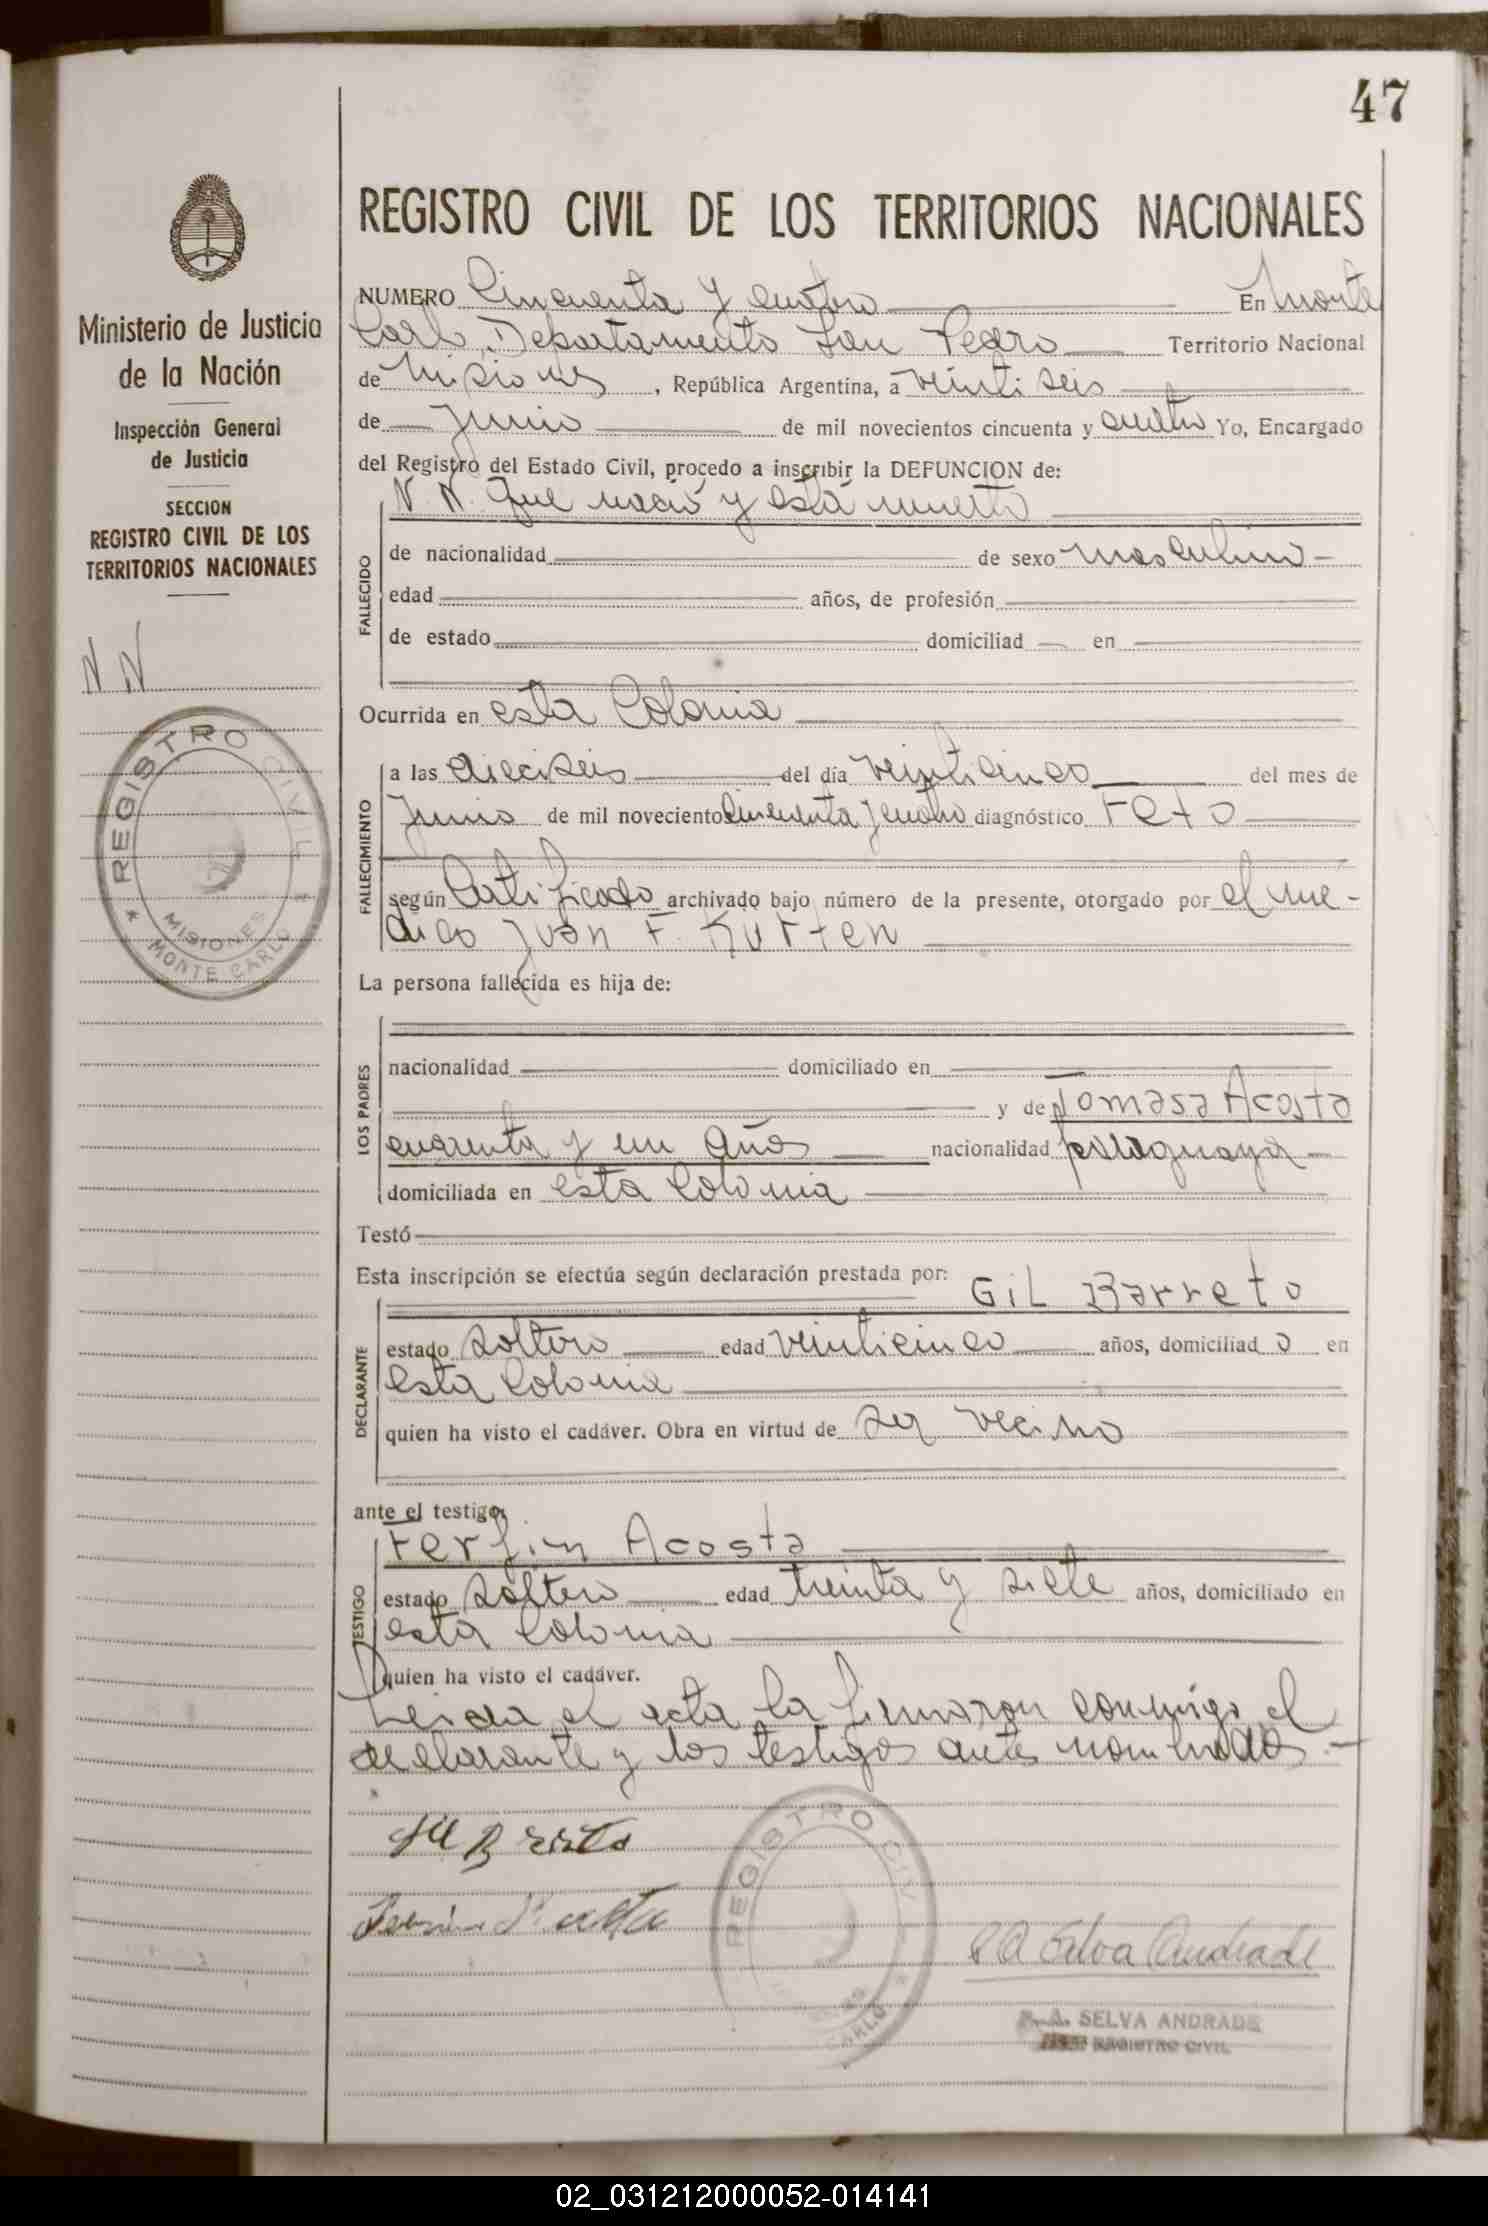 47
REGISTRO CIVIL DE LOS TERRITORIOS NACIONALES
Ministerio de Justicia
de la Nación
Inspección General
de Justicia
SECCION
REGISTRO CIVIL DE LOS
TERRITORIOS NACIONALES
N N
REGISTRO CIVIL
MISIONES
MONTE CARLO
NUMERO Cincuenta y cuatro En Monte
Carlo, Departamento San Pedro Territorio Nacional
de Misiones, República Argentina, a veintiseis
de Junio de mil novecientos cincuenta y cuatro Yo, Encargado
del Registro del Estado Civil, procedo a inscribir la DEFUNCION de:
N. N. que nació y está muerto
FALLECIDO
de nacionalidad de sexo masculino
edad años, de profesión
de estado domiciliad en
Ocurrida en esta Colonia
FALLECIMIENTO
a las dieciseis del día veinticinco del mes de
Junio de mil novecientos cincuenta y cuatro diagnóstico Feto
según Certificado archivado bajo número de la presente, otorgado por el mé-
dico Juan F. Kurten
La persona fallecida es hija de:
LOS PADRES
nacionalidad domiciliado en
y de Tomasa Acosta
cuarenta y un años nacionalidad paraguaya
domiciliada en esta Colonia
Testó
Esta inscripción se efectúa según declaración prestada por:
Gil Barreto
DECLARANTE
estado soltero edad veinticinco años, domiciliad o en
esta Colonia
quien ha visto el cadáver. Obra en virtud de ser vecino
ante el testigo:
Ferfin Acosta
TESTIGO
estado soltero edad treinta y siete años, domiciliado en
esta Colonia
quien ha visto el cadáver.
Leida el acta la firmaron conmigo el
declarante y los testigos antes nombrados.
REGISTRO CIV
CARLO
Selva Andrade
SELVA ANDRADE
REGISTRO CIVIL
02_031212000052-014141